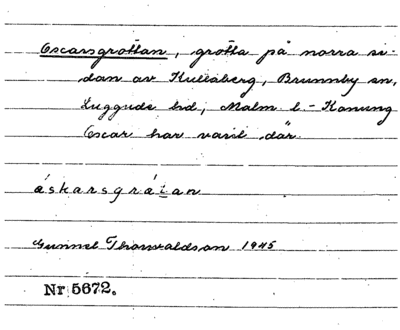 Oscarsgrottan, grotta på norra si-
dan av Kullaberg, Brunnby sn,
Luggude hd, Malm. l. - Konung
Oscar har varit där.
áskarsgrátan
Gunnel Thorwaldson 1945
Nr 5672.